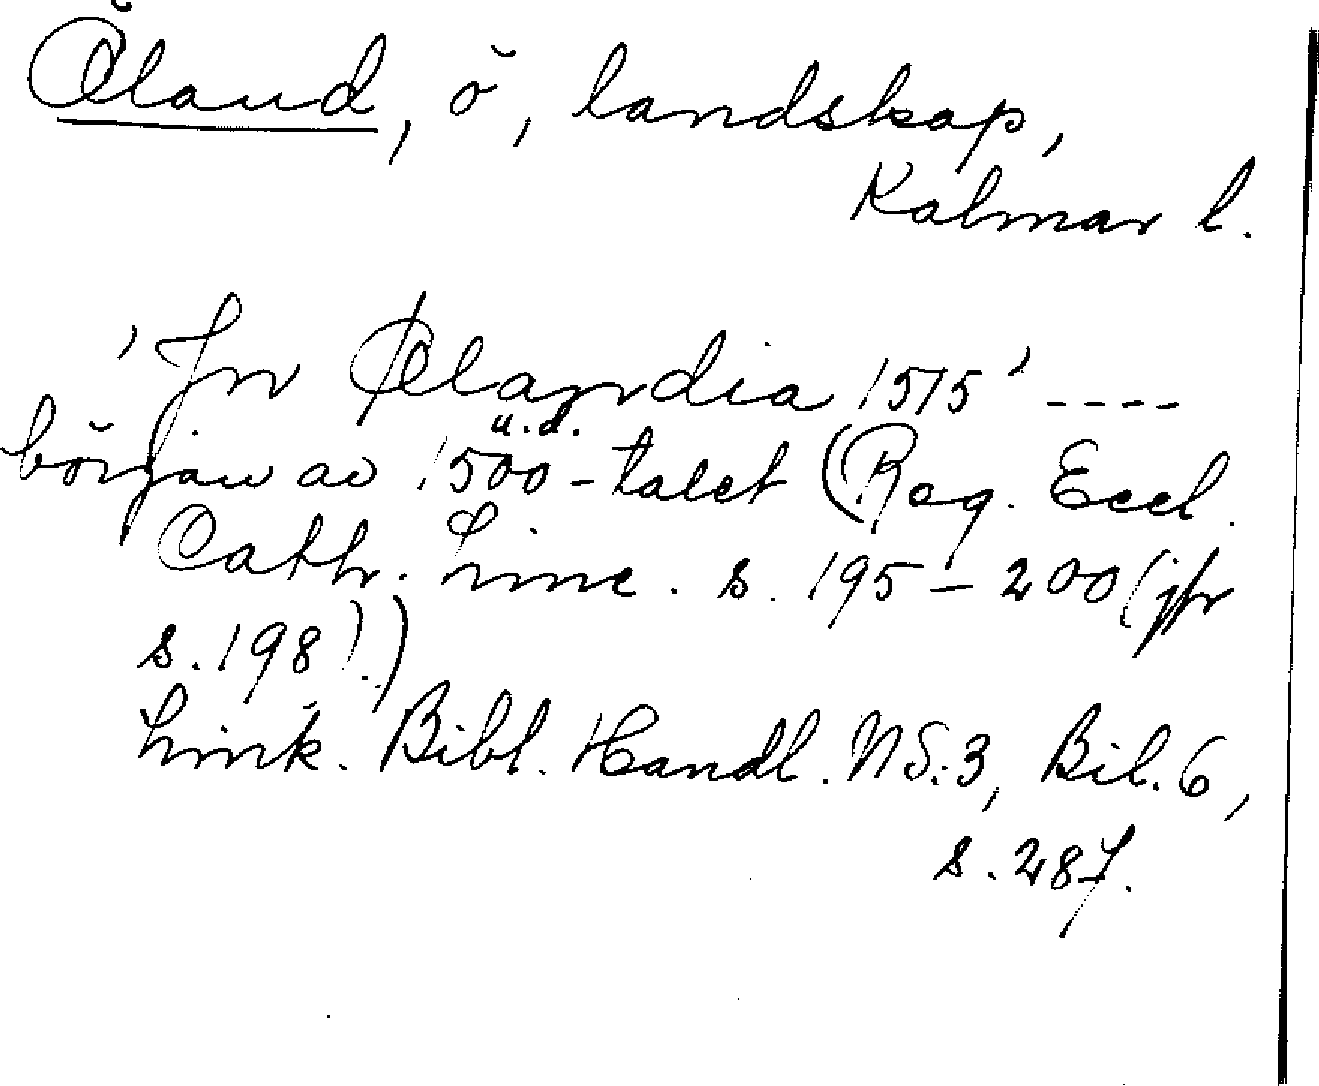 Öland, ö, landskap,
Kalmar l.
'Jn Ølandia 1515' ----
u.d.
början av 1500-talet (Reg. Eccl.
Cath. Linc. s. 195-200 (jfr
s. 198).)
Link. Bibl. Handl. NS:3, Bil. 6,
s. 287.